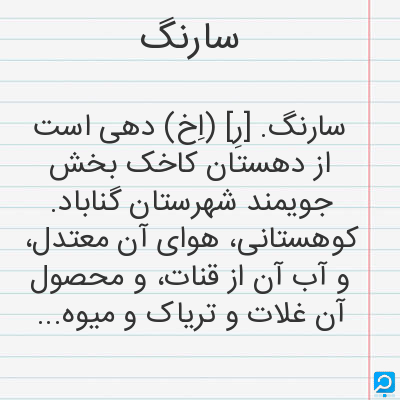 سارنگ
سارنگ. [رِ] (اِخ) دهی است
از دهستان کاخک بخش
جویمند شهرستان گناباد.
کوهستانی، هوای آن معتدل،
و آب آن از قنات، و محصول
آن غلات و تریاک و میوه...